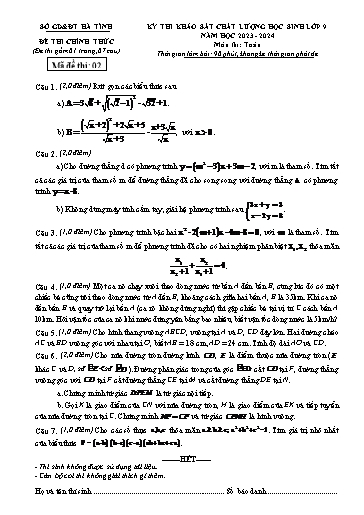 SỞ GD&ĐT HÀ TĨNH
KỲ THI KHẢO SÁT CHẤT LƯỢNG HỌC SINH LỚP 9
NĂM HỌC 2023 - 2024
ĐỀ THI CHÍNH THỨC
Môn thi: Toán
(Đề thi gồm 01 trang, 07 câu)
Thời gian làm bài: 90 phút, không kể thời gian phát đề
Mã đề thi: 02
Câu 1. (2,0 điểm) Rút gọn các biểu thức sau.
với x>0.
Câu 2. (2,0 điểm)
a) Cho đường thẳng d có phương trình y=(m²-5)x+5m-2, với m là tham số. Tìm tất
cả các giá trị của tham số m để đường thẳng đã cho song song với đường thẳng Δ có phương
b) Không dùng máy tính cầm tay, giải hệ phương trình sau
Câu 3. (1,0 điểm) Cho phương trình bậc hai với m là tham số. Tìm
tất cả các giá trị của tham số m để phương trình đã cho có hai nghiệm phân biệt x₁, x₂ thỏa mãn
Câu 4. (1,0 điểm) Một ca nô chạy xuôi theo dòng nước từ bến A đến bến B, cùng lúc đó có một
chiếc bè cũng trôi theo dòng nước từ A đến B, khoảng cách giữa hai bến A, B là
đến bến B và quay trở lại bến A (ca nô không dừng nghỉ) thì gặp chiếc bè tại vị trí C cách bến A
10km. Hỏi vận tốc của ca nô khi nước đứng yên bằng bao nhiêu, biết vận tốc dòng nước là 5km/h?
Câu 5. (1,0 điểm) Cho hình thang vuông ABCD, vuông tại A và D, CD đáy lớn. Hai đường chéo
AC và BD vuông góc với nhau tại O, biết AB = 18 cm, AD = 24 cm. Tính độ dài AO và CD.
Câu 6. (2,0 điểm) Cho nửa đường tròn đường kính CD, E là điểm thuộc nửa đường tròn (E
khác C và D, Đường phân giác trong của góc cắt CD tại F, đường thẳng
vuông góc với CD tại F cắt đường thẳng CE tại M và cắt đường thẳng DE tại N.
a. Chứng minh tứ giác là tứ giác nội tiếp.
b. Gọi K là giao điểm của CN với nửa đường tròn, H là giao điểm của EK và tiếp tuyến
của nửa đường tròn tại C. Chứng minh và tứ giác là hình vuông.
Câu 7. (1,0 điểm) Cho các số thực a,b,c thỏa mãn Tìm giá trị nhỏ nhất
của biểu thức
HẾT
- Thí sinh không được sử dụng tài liệu.
- Cán bộ coi thi không giải thích gì thêm.
Họ và tên thí sinh Số báo danh